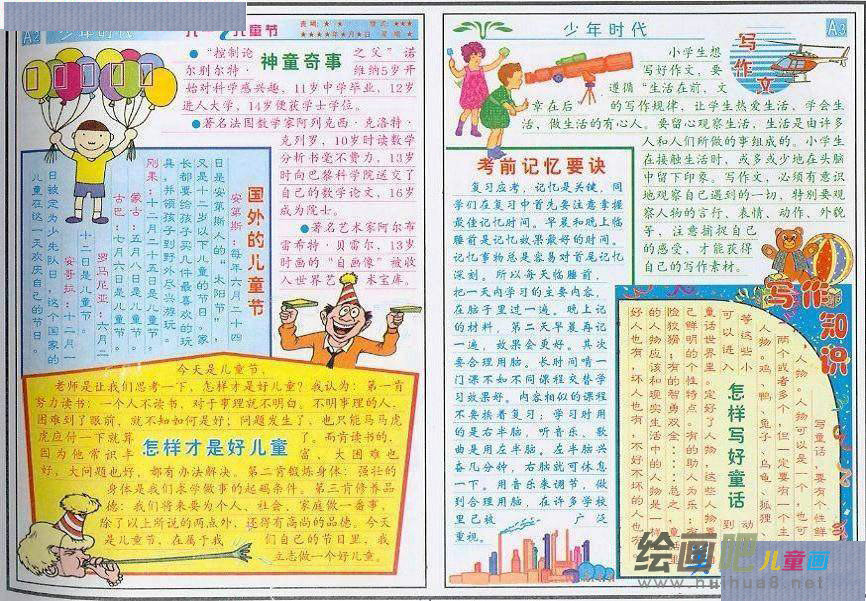 A2 少年时代
儿童节
神童奇事
●“控制论之父”诺
尔别尔特·维纳5岁开
始对科学感兴趣，11岁中学毕业，12岁
进入大学，14岁便获学士学位。
●著名法国数学家阿列克西·克洛特·
克列罗，10岁时读数学
分析书毫不费力，13岁
时向巴黎科学院送交了
自己的数学论文，16岁
成为院士。
●著名艺术家阿尔布
雷希特·贝雷尔，13岁
时画的“自画像”被收
入世界艺术宝库。
国外的儿童节
安第斯：每年六月二十四
日是安第斯人的“太阳节”，
又是十二岁以下儿童的节日。家
长都要给孩子买几件最喜欢的玩
具，并领孩子到野外尽兴游玩。
刚果：十二月二十五日是儿童节。
蒙古：五月八日是儿童节。
古巴：七月六日是儿童节。
罗马尼亚：六月二
十二日是儿童节。
安哥拉：十二月一
日被定为少先队日，这个国家的
儿童在这一天欢庆自己的节日。
怎样才是好儿童
今天是儿童节，
老师是让我们思考一下，怎样才是好儿童？我认为：第一肯
努力读书：一个人不读书，对于事理就不明白。不明事理的人，
困难到了眼前，就不知如何是好；问题发生了，也只能马马虎
虎应付一下就算了。而肯读书的，
因为他常识丰富，大困难也
好，大问题也好，都有办法解决。第二肯锻炼身体：强壮的
身体是我们求学做事的起码条件。第三肯修养品
德：我们将来要为个人、社会、家庭做一番事，
除了以上所说的两点外，还得有高尚的品德。今天
是儿童节，在属于我们自己的节日里，我
立志做一个好儿童。
少年时代 A3
写作文
小学生想
写好作文，要
遵循“生活在前，文
章在后的写作规律，让学生热爱生活，学会生
活，做生活的有心人。要留心观察生活，生活是由许多
人和人们所做的事组成的。小学生
在接触生活时，或多或少地在头脑
中留下印象。写作文，必须有意识
地观察自己遇到的一切，特别要观
察人物的言行、表情、动作、外貌
等，注意捕捉自己
的感受，才能获得
自己的写作素材。
考前记忆要诀
复习应考，记忆是关键，同
学们在复习中首先要注意掌握
最佳记忆时间。早晨和晚上临
睡前是记忆效果最好的时间。
记忆事物总是容易对首尾记忆
深刻。所以每天临睡前，
把一天内学习的主要内容，
在脑子里过一遍。晚上记
的材料，第二天早晨再记
一遍，效果会更好。其次
要合理用脑。长时间啃一
门课不如不同课程交替学
习效果好。内容相似的课程
不要挨着复习；学习时用
的是右半脑，听音乐、歌
曲是用左半脑。左半脑兴
奋几分钟，右脑就可休息
一下。用音乐来调节，做
到合理用脑，在许多学校
里已被广泛
重视。
写作知识
怎样写好童话
写童话，要有个性鲜
人物。人物可以是一个，也可
两个或者多个，但一定要有一个
人物。鸡、鸭、兔子、乌龟、狐狸
等这些小动
可以进入到
童话世界里。定好了人物，这些人物
己鲜明的个性特点。有的助人为乐；有
险狡猾；有的智勇双全……总之，童话
的人物应该和现实生活中的人物是一样
好人也有，坏人也有，不好不坏的人也有
绘画吧
儿童画
www.huihua8.net